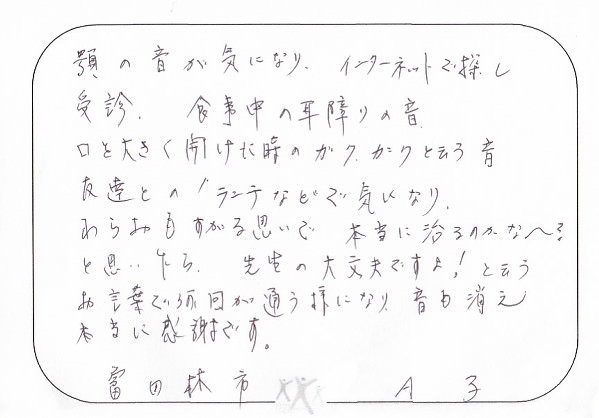 顎の音が気になり、インターネットで探し
受診、食事中の耳障りの音
口を大きく開けた時のガク、ガクと云う音
友達とのランチなどで気になり、
わらおもすがる思いで 本当に治るのかな〜?
と思いたら、先生の大丈夫ですよ!と云う
お言葉で 回が通う様になり 音も消え
本当に感謝です。
富田林市 A子